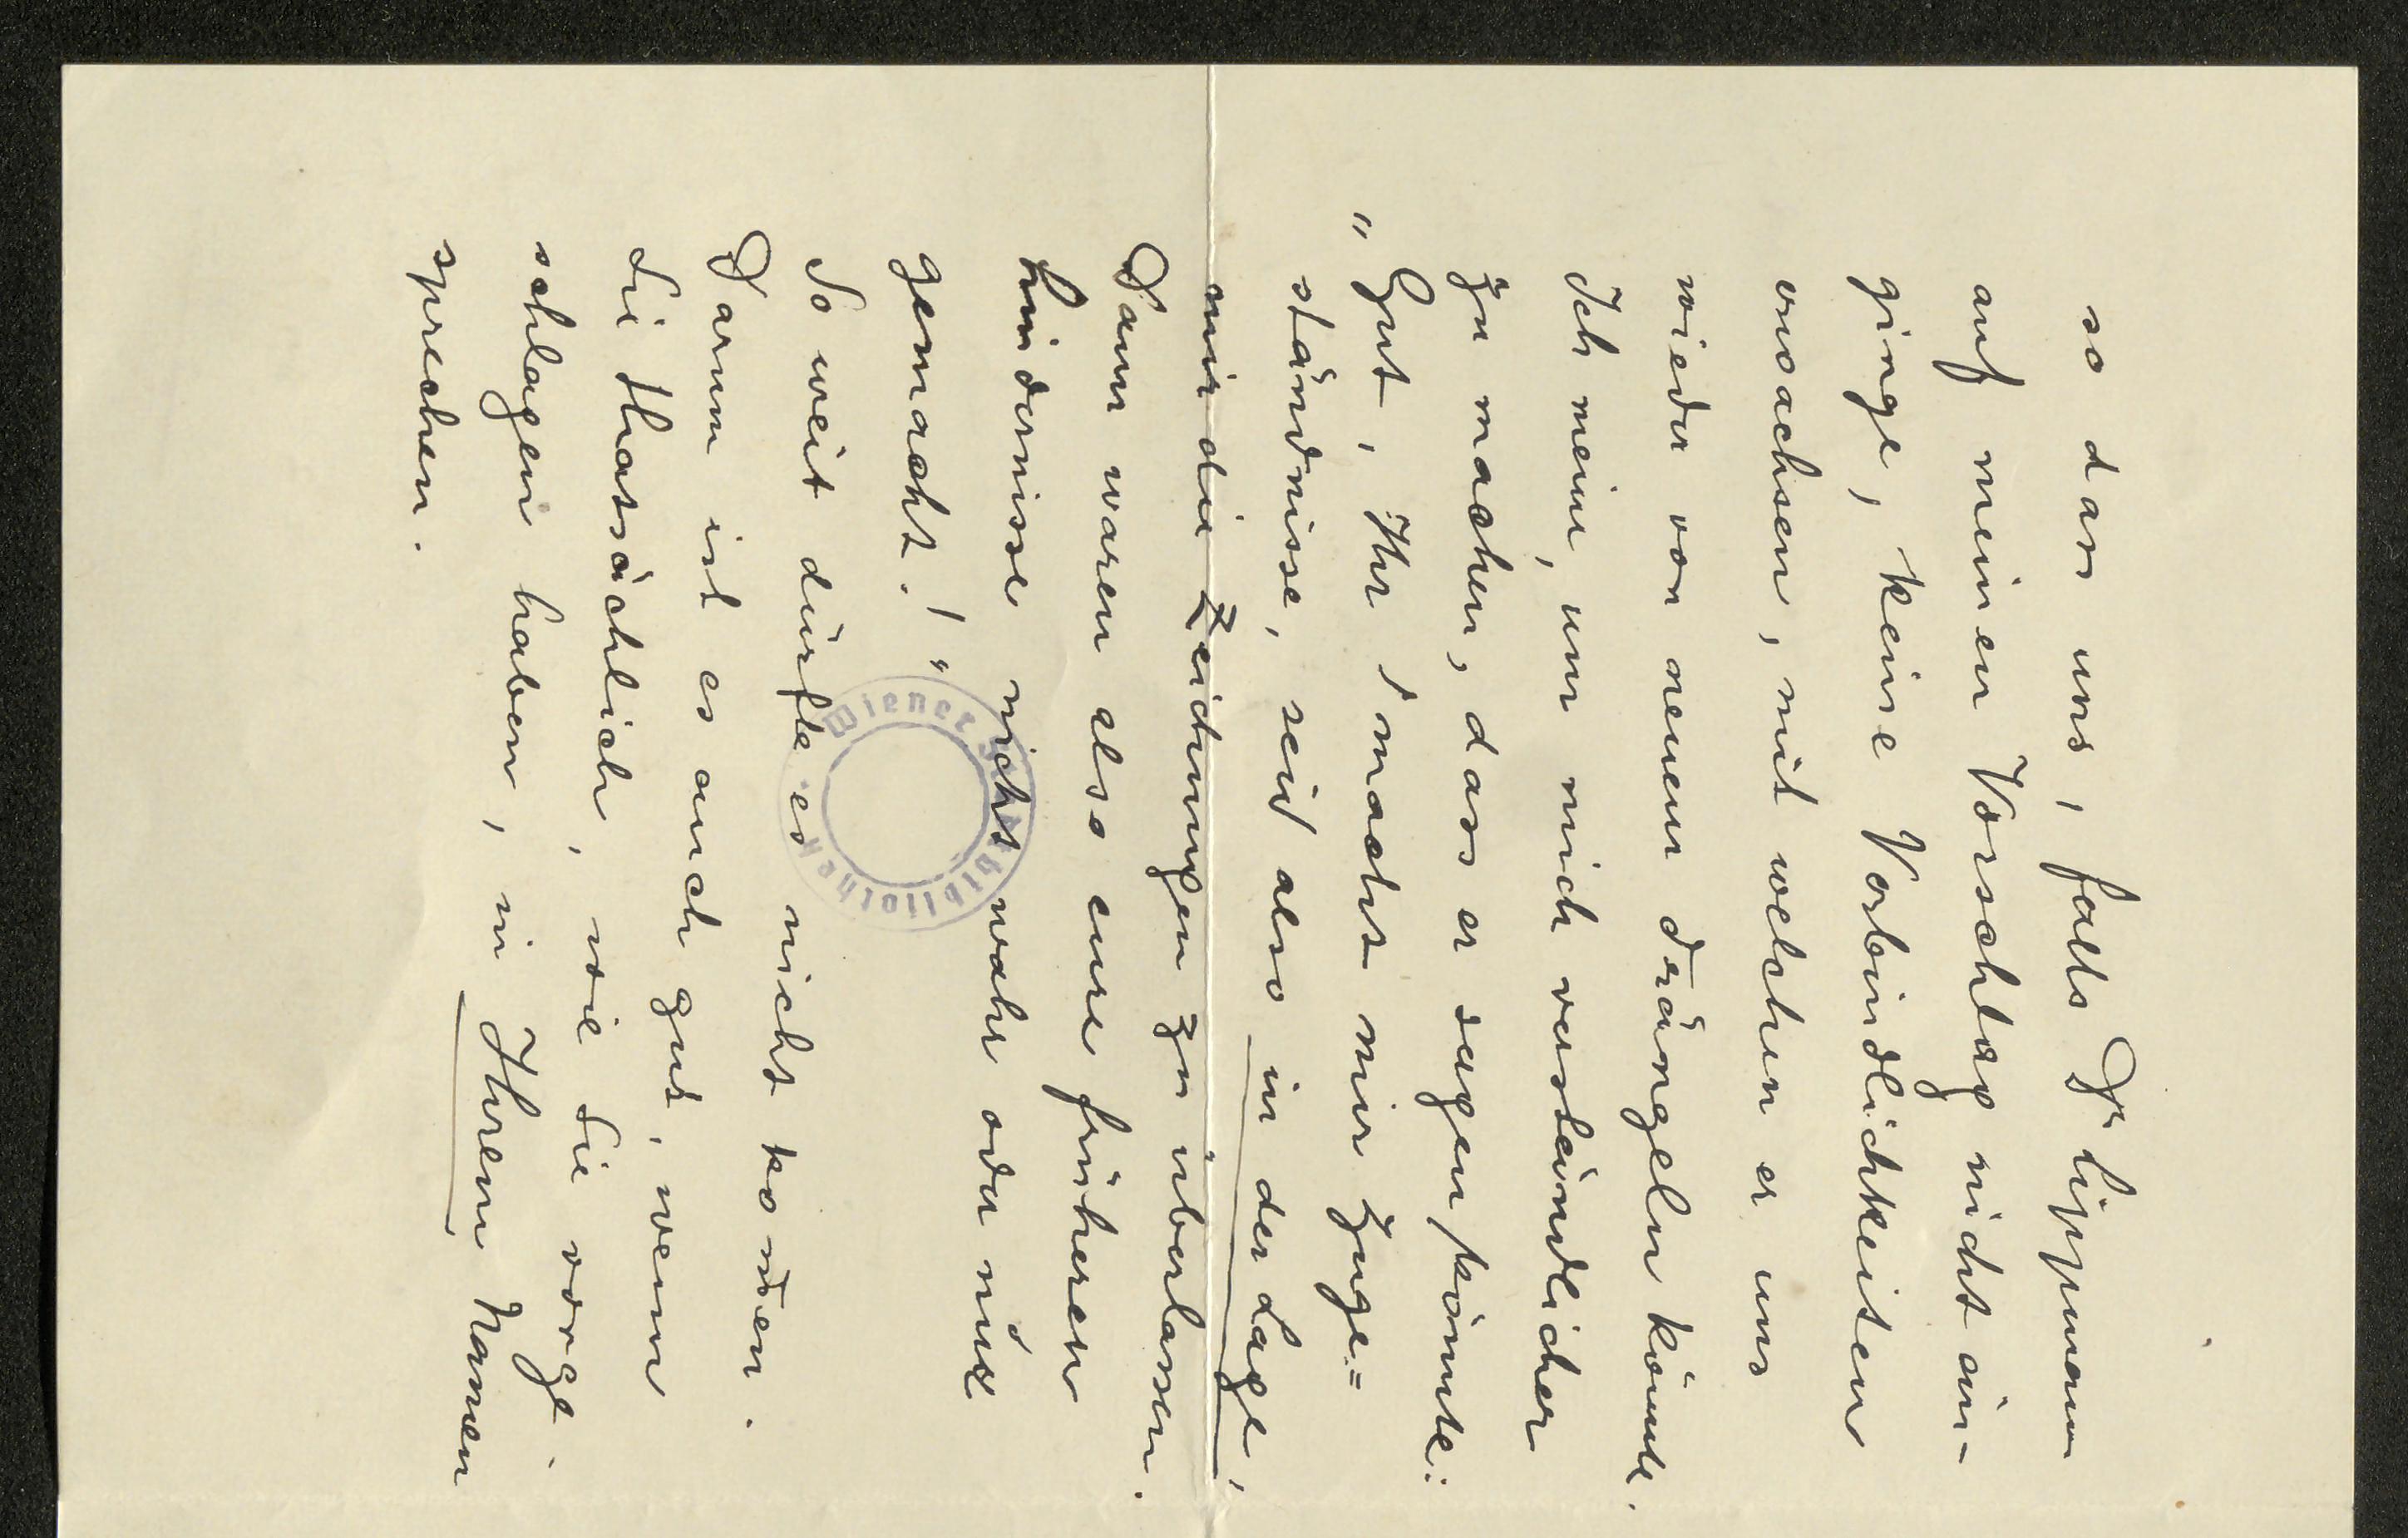 so dass uns, falls Dr Lippmann
auf meinen Vorschlag nicht ein-
ginge, keine Verbindlichkeiten
erwachsen, mit welchen er uns
wieder von neuem drängeln könnte.
Ich meine, um mich verständlicher
zu machen, dass er sagen könnte:
„Gut, Ihr macht mir Zuge=
ständnisse, seid also in der Lage,
mir die Zeichnungen zu überlassen.
Dann waren also eure früheren
Hindernisse nicht wahr oder nur
gemacht.!"
So weit dürfte es nicht kommen.
Darum ist es auch gut, wenn
Sie thatsächlich, wie Sie vorge-
schlagen haben, in Ihrem Namen
sprechen.
Wiener Stadtbibliothek